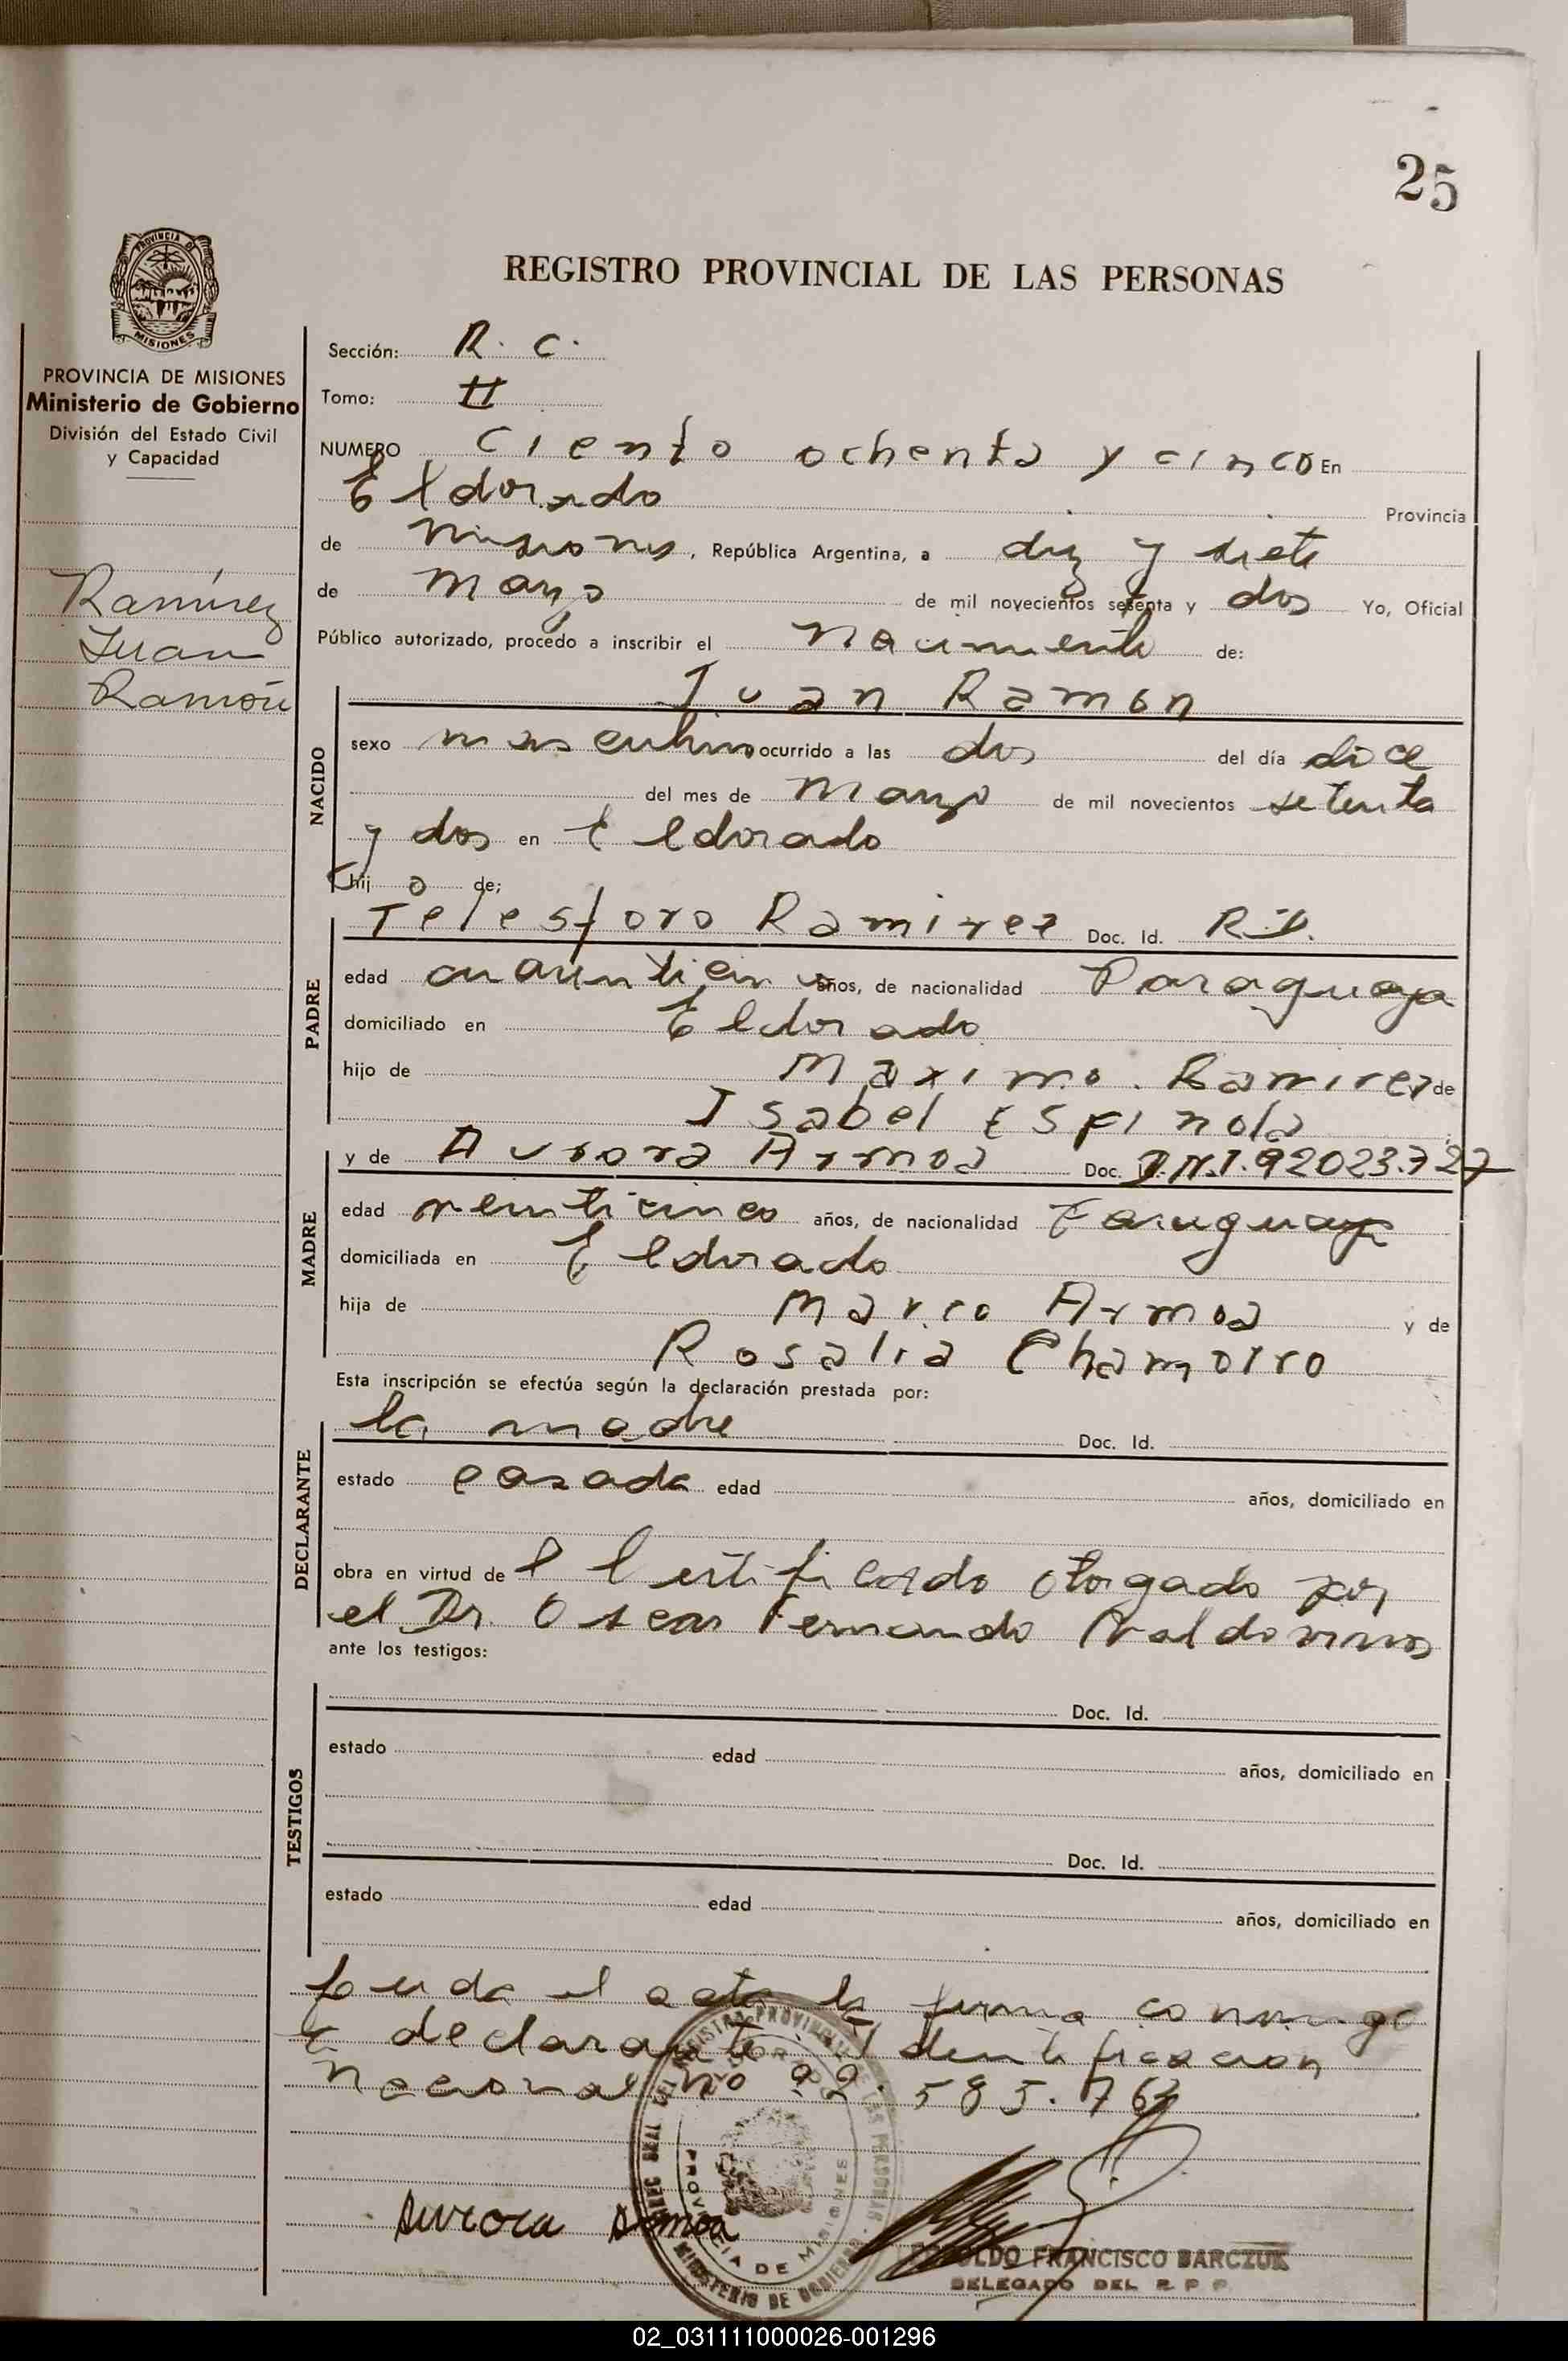 25
PROVINCIA DE
MISIONES
PROVINCIA DE MISIONES
Ministerio de Gobierno
División del Estado Civil
y Capacidad
Ramírez
Juan
Ramón
REGISTRO PROVINCIAL DE LAS PERSONAS
Sección: R. C.
Tomo: II
NUMERO Ciento ochenta y cinco En
Eldorado Provincia
de Misiones, República Argentina, a diez y siete
de Marzo de mil novecientos setenta y dos Yo, Oficial
Público autorizado, procedo a inscribir el Nacimiento de:
Juan Ramón
NACIDO
sexo masculino ocurrido a las dos del día doce
del mes de Marzo de mil novecientos setenta
y dos en Eldorado
hijo de;
PADRE
Telesforo Ramirez Doc. Id.
edad años, de nacionalidad Paraguaya
domiciliado en Eldorado
hijo de Maximo Ramirez de
Isabel Espinola
MADRE
y de Aurora Armoa Doc. D.N.I. 92023.727
edad veinticinco años, de nacionalidad Paraguaya
domiciliada en Eldorado
hija de Marco Armoa y de
Rosalia Chamorro
Esta inscripción se efectúa según la declaración prestada por:
DECLARANTE
la madre Doc. Id.
estado casada edad años, domiciliado en
obra en virtud del Certificado otorgado por
el Dr. Oscar Fernando Valdovinos
ante los testigos:
TESTIGOS
Doc. Id.
estado edad años, domiciliado en
Doc. Id.
estado edad años, domiciliado en
Leída el acta la firma conmigo
la declarante. Identificacion
Nacional nº 92.585.763
Aurora Armoa
PROVINCIA DE MISIONES
MINISTERIO DE GOBIERNO
FRANCISCO BARCZUK
DELEGADO DEL R. P. P.
02_031111000026-001296